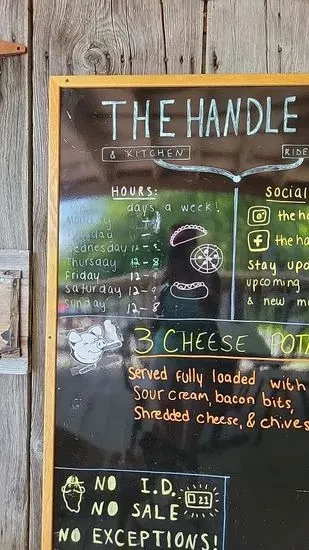 THE HANDLE
& KITCHEN
RIDE
HOURS:
days a week!
Monday
Wednesday 12-8
Thursday 12-8
Friday 12-9
Saturday 12-9
Sunday 12-8
SOCIAL
the ha
the ha
Stay upd
upcoming
& new m
3 CHEESE POT
Served fully loaded with
Sour cream, bacon bits,
Shredded cheese, & chives
NO I.D. 21
NO SALE
NO EXCEPTIONS!